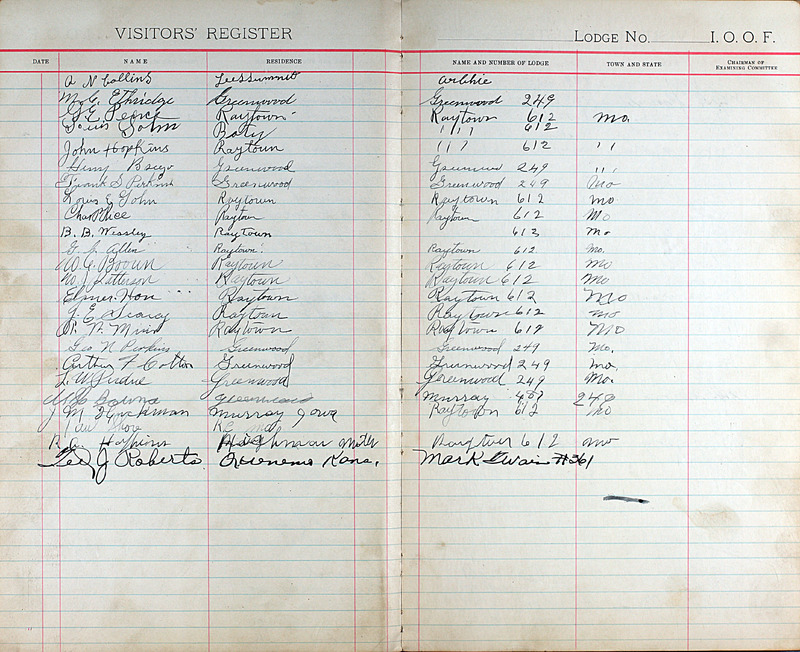 VISITORS' REGISTER
LODGE NO. I. O. O. F.
DATE NAME RESIDENCE NAME AND NUMBER OF LODGE TOWN AND STATE CHAIRMAN OF EXAMINING COMMITTEE
A N Collins Leessummit
Ethridge Greenwood Greenwood 249
Raytown Raytown 612 Mo
John 612
John Hopkins Raytown 612
Greenwood 249
Frank S Perkins Greenwood Greenwood 249 Mo
Louis E John Raytown Raytown 612 Mo
Chas Price Raytown Raytown 612 Mo
B. B. Wessley Raytown 612 Mo
Allen Raytown Raytown 612 Mo.
W. C. Brown Raytown Raytown 612 Mo
W. J. Patterson Raytown Raytown 612 Mo
Elmer Hon Raytown Raytown 612 Mo
J. E. Searcy Raytown Raytown 612 Mo
Muir Raytown Raytown 612 Mo
Geo N Perkins Greenwood Greenwood 249 Mo.
Arthur F Cotton Greenwood Greenwood 249 Mo.
L. A Perdue Greenwood Greenwood 249 Mo.
Greenwood Murray 248
J M Murray Iowa Raytown 612 Mo
Hopkins 612 Mo
J Roberts Kans. Mark Twain #361